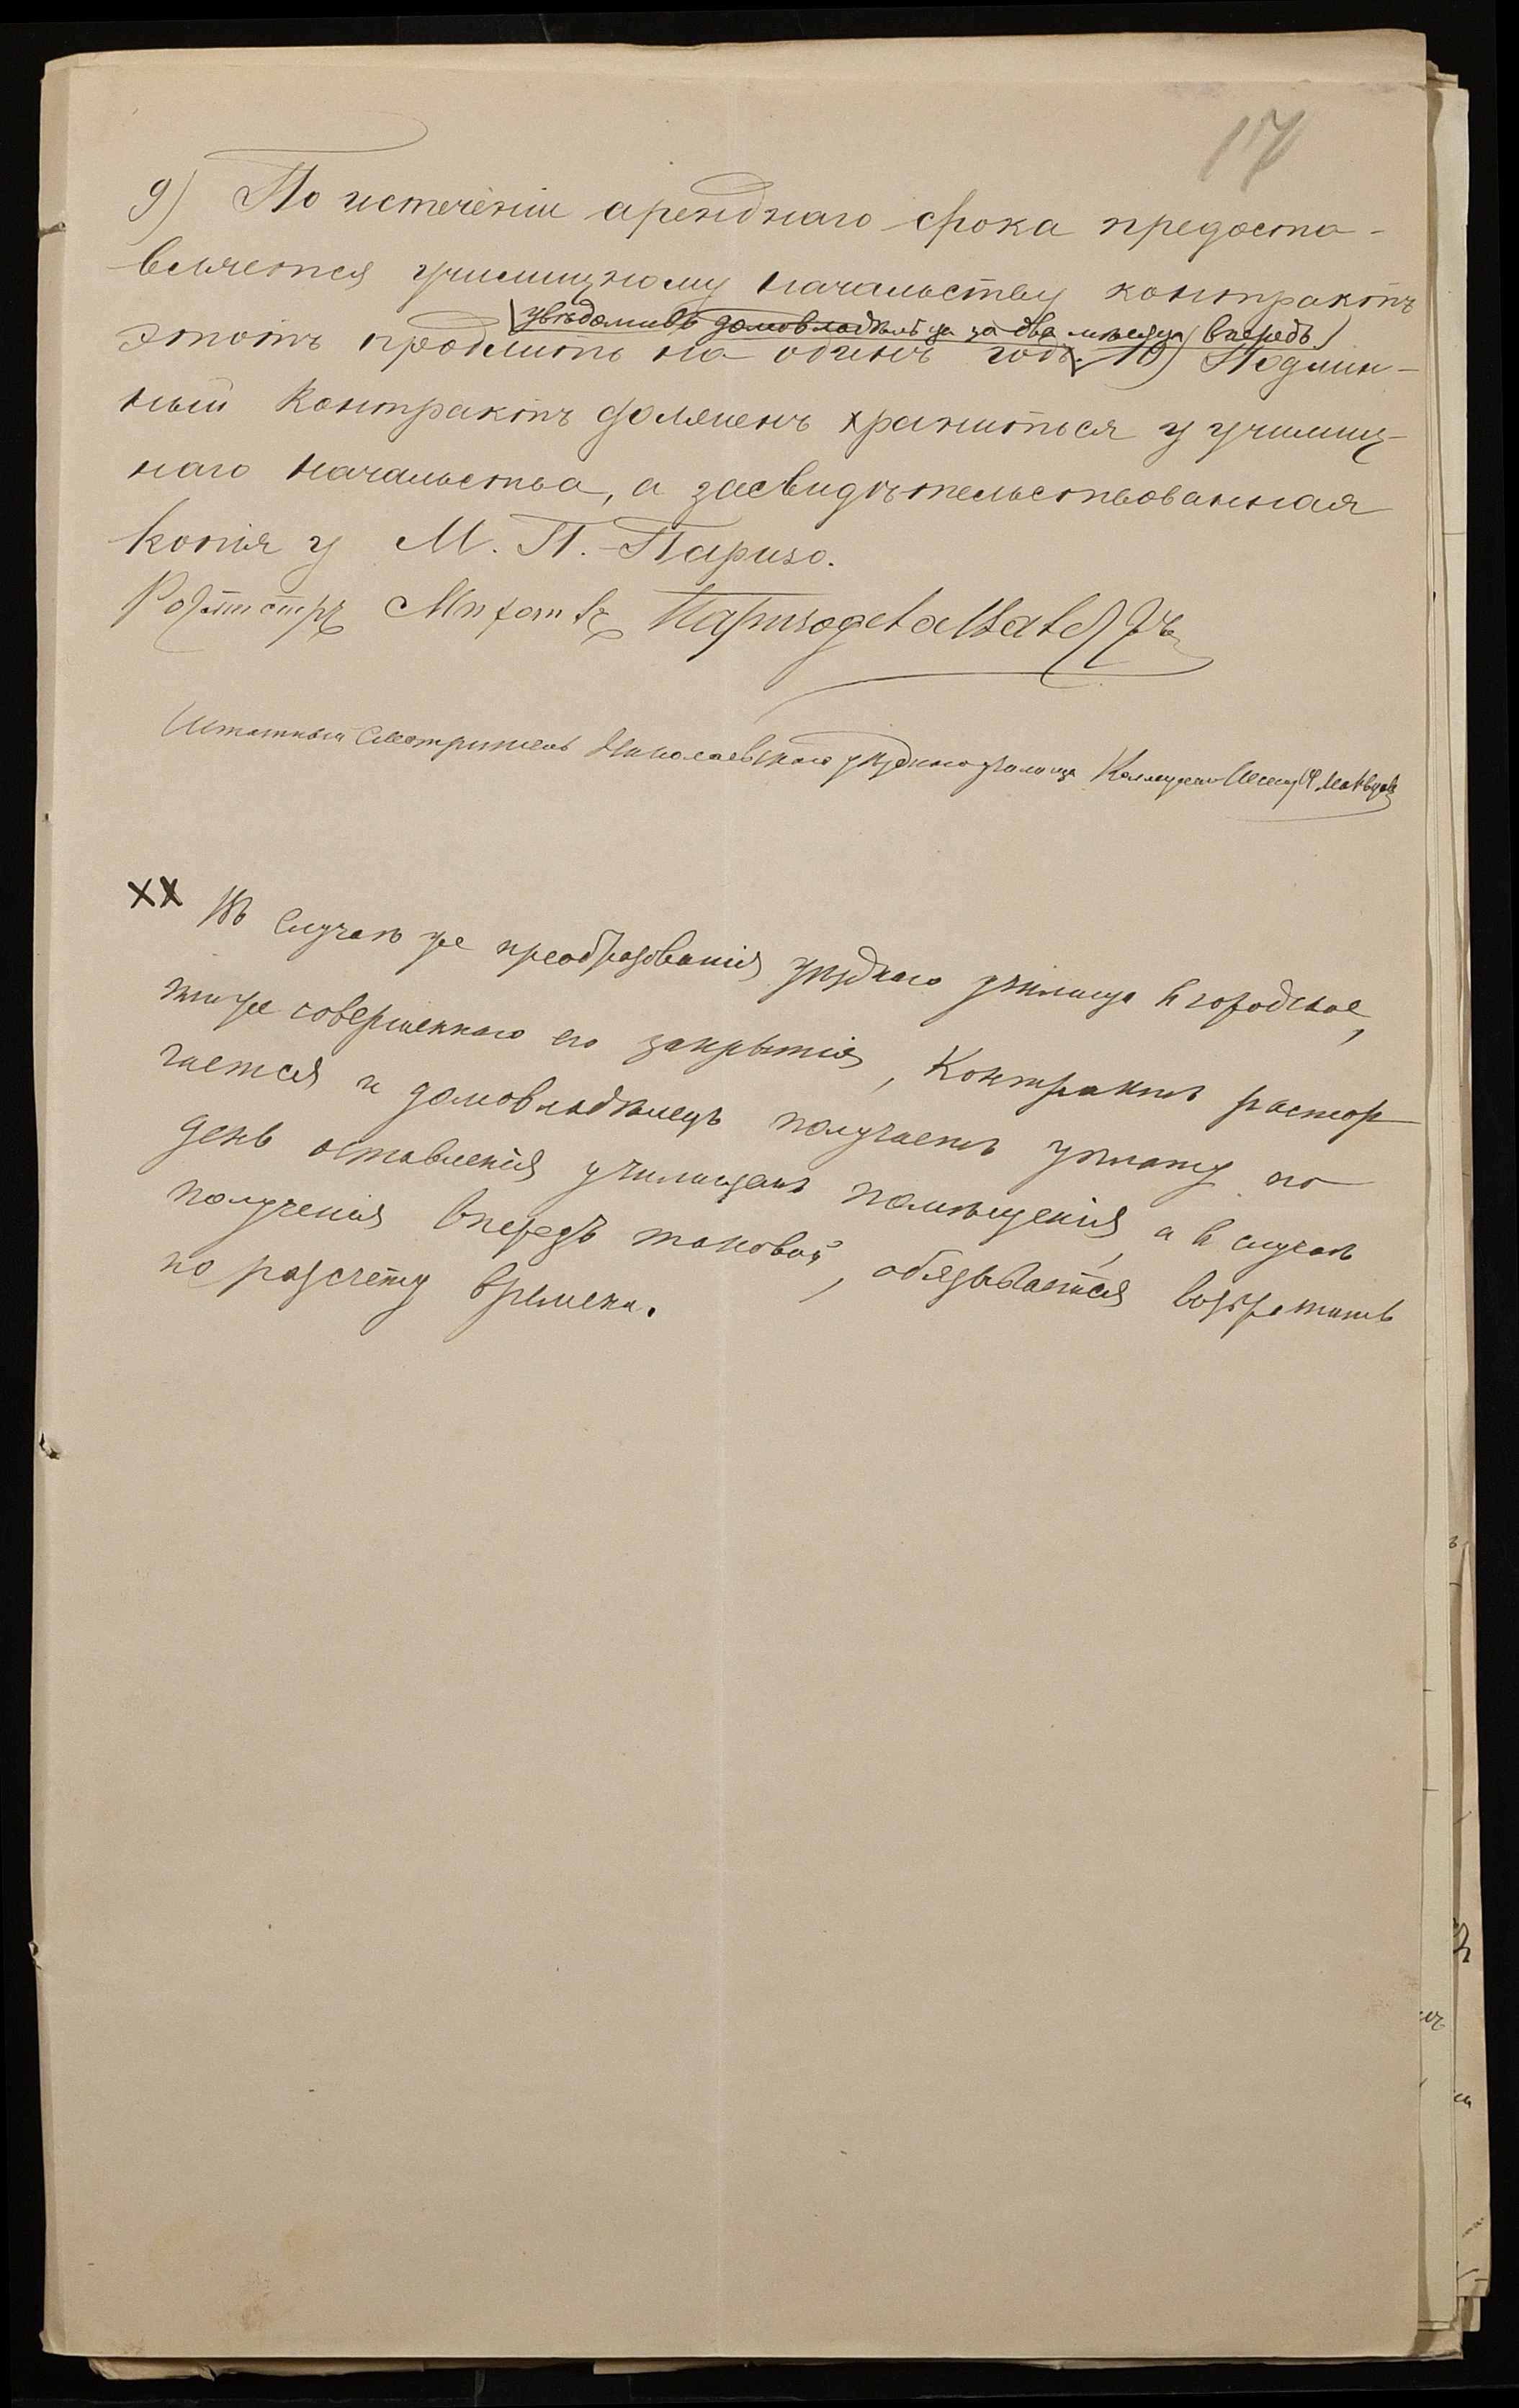 17
9) По истеченіи аренднаго срока предоста-
вляется училищному начальству контрактъ
увѣдомивъ домовладѣльца за два мѣсяца впередъ
этотъ продлить на одинъ годъ. 10) Подлин-
ный контрактъ долженъ храниться у училищ-
наго начальства, а засвидѣтельствованная
копія у М. П. Паризо.
Ротмистръ
Штатный Смотритель Николаевскаго уѣзднаго училища
XX Въ случаѣ же преобразованія уѣзднаго училища въ городское,
или же совершеннаго его закрытія, контрактъ растор
гается и домовладѣлецъ получаетъ уплату по
день оставленія училищемъ помѣщенія, а въ случаѣ
полученія впередъ таковой, обязывается возвратить
по разсчету времени.